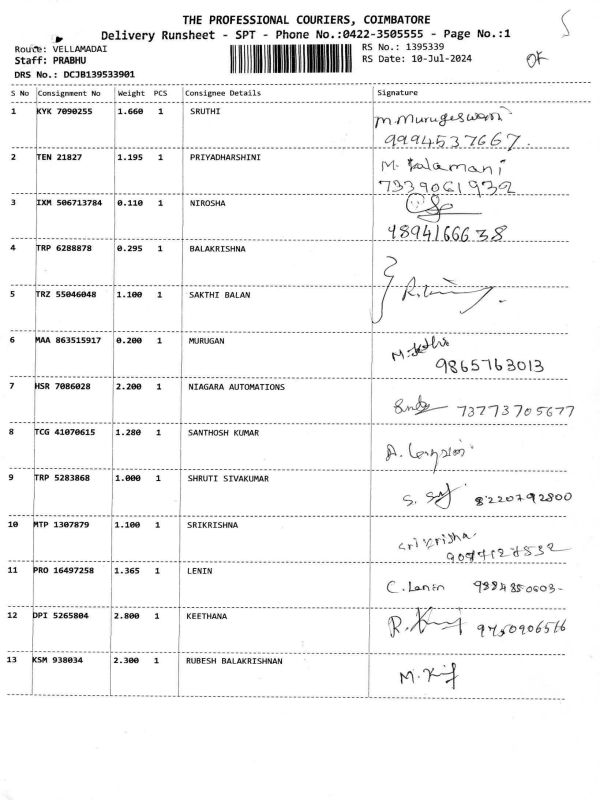 THE PROFESSIONAL COURIERS, COIMBATORE
Delivery Runsheet - SPT - Phone No.:0422-3505555 - Page No.:1
Route: VELLAMADAI RS No.: 1395339
Staff: PRABHU RS Date: 10-Jul-2024 OK
DRS No.: DCJB139533901
S No Consignment No Weight PCS Consignee Details Signature
1 KYK 7090255 1.660 1 SRUTHI M.Murugeswari
9994537667.
2 TEN 21827 1.195 1 PRIYADHARSHINI M. Kalamani
7339061932
3 IXM 506713784 0.110 1 NIROSHA
4894166638
4 TRP 6288878 0.295 1 BALAKRISHNA
5 TRZ 55046048 1.100 1 SAKTHI BALAN
6 MAA 863515917 0.200 1 MURUGAN
9865763013
7 HSR 7086028 2.200 1 NIAGARA AUTOMATIONS
73773705677
8 TCG 41070615 1.280 1 SANTHOSH KUMAR
9 TRP 5283868 1.000 1 SHRUTI SIVAKUMAR
8220792800
10 MTP 1307879 1.100 1 SRIKRISHNA
11 PRO 16497258 1.365 1 LENIN C.Lenin
12 DPI 5265804 2.800 1 KEETHANA
13 KSM 938034 2.300 1 RUBESH BALAKRISHNAN